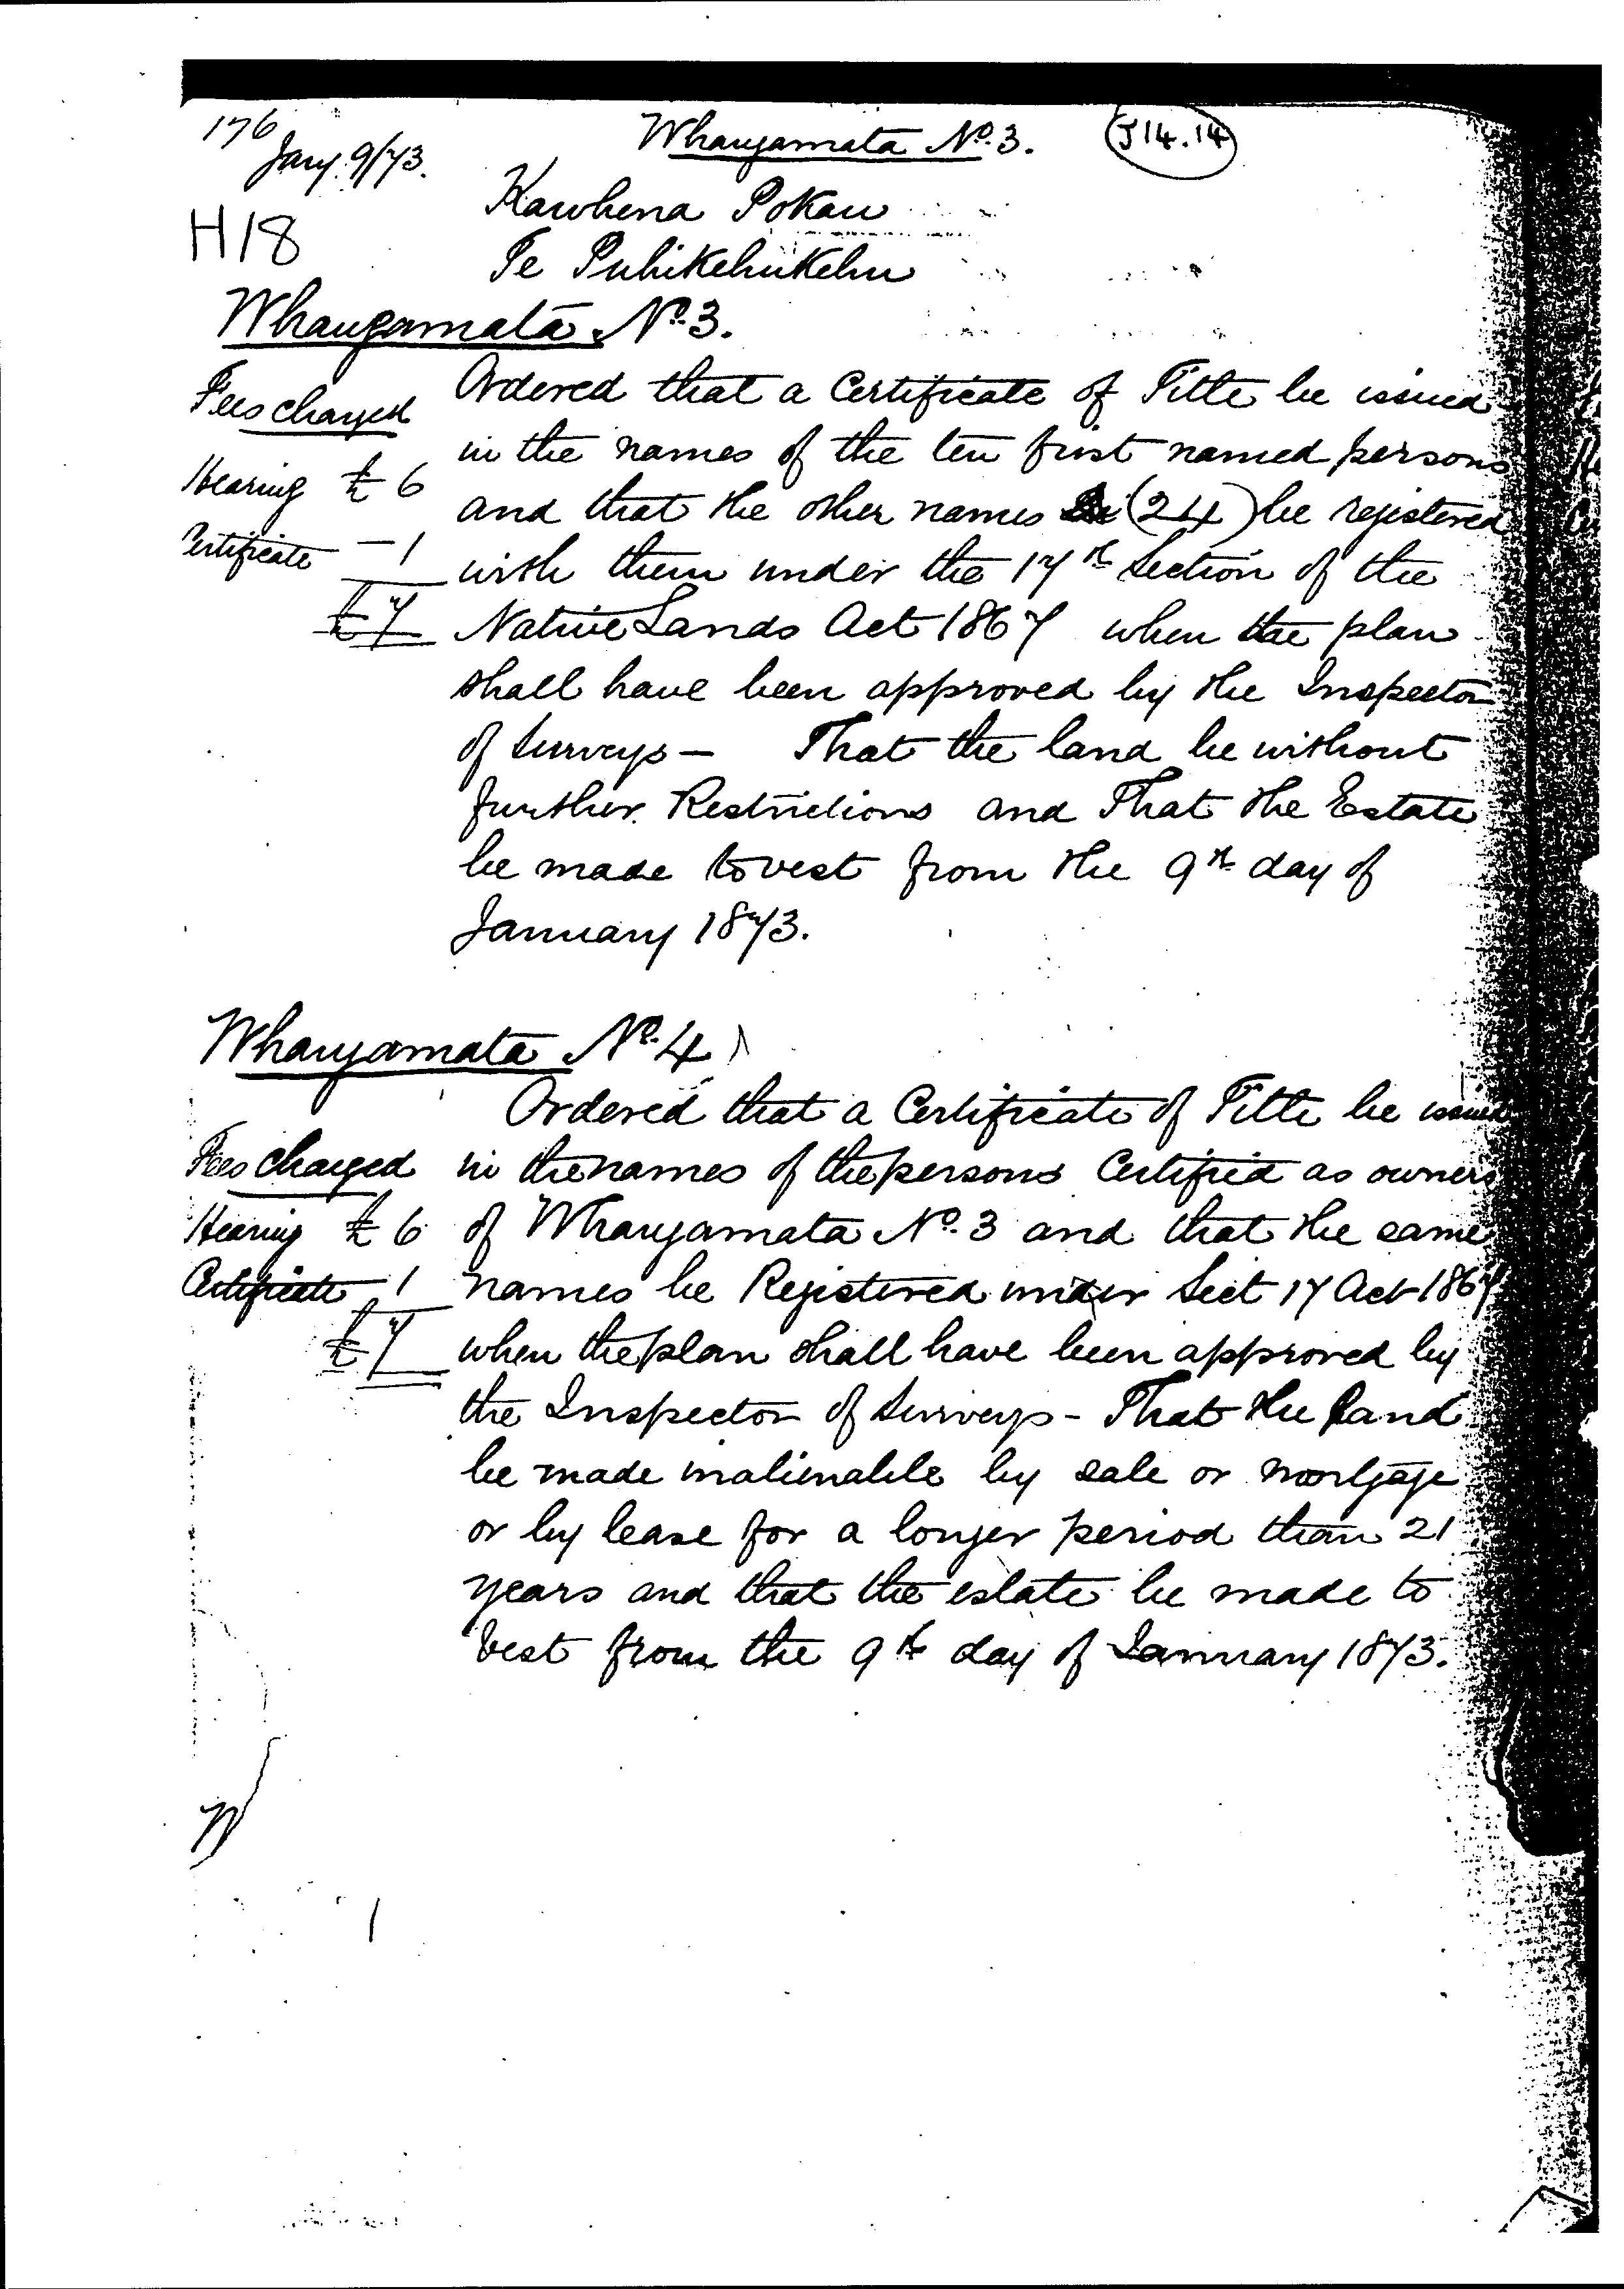 176
Jany. 9/73.
Whangamata No. 3.
J14.14
H18
Kawhena Pokau
Te Puhikehukehu
Whangamata No. 3.
Fees charged
Hearing £ 6
Certificate – 1
£ 7
Ordered that a Certificate of Title be issued
in the names of the ten first named persons
and that the other names (24) be registered
with them under the 17th Section of the
Native Lands Act 1867 when the plan
shall have been approved by the Inspector
of Surveys – That the land be without
further Restrictions and That the Estate
be made to vest from the 9th day of
January 1873.
Whangamata No. 4
Fees charged
Hearing £ 6
Certificate 1
£ 7
Ordered that a Certificate of Title be issued
in the names of the persons Certified as owners
of Whangamata No. 3 and that the same
names be Registered under Sect 17 Act 1867
when the plan shall have been approved by
the Inspector of Surveys – That the Land
be made inalienable by sale or mortgage
or by lease for a longer period than 21
years and that the estate be made to
vest from the 9th day of January 1873.